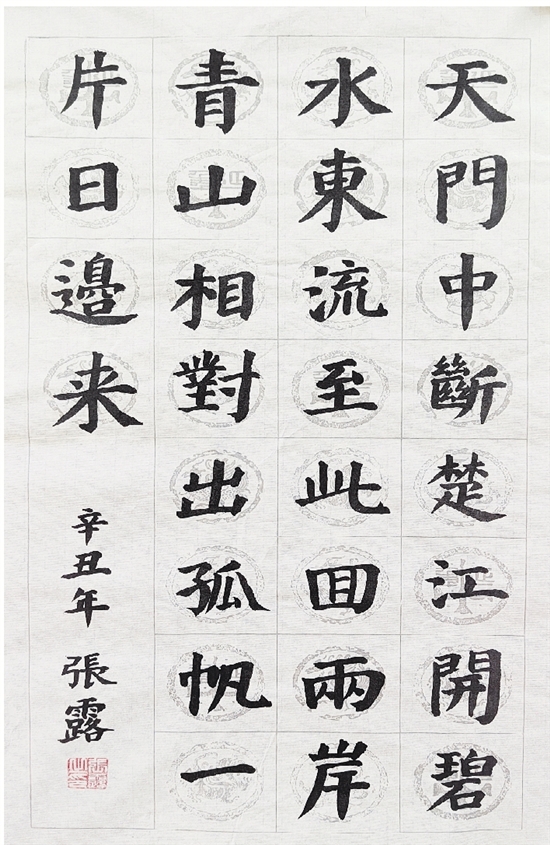 天門中斷楚江開碧
水東流至此回兩岸
青山相對出孤帆一
片日邊来
辛丑年 張露